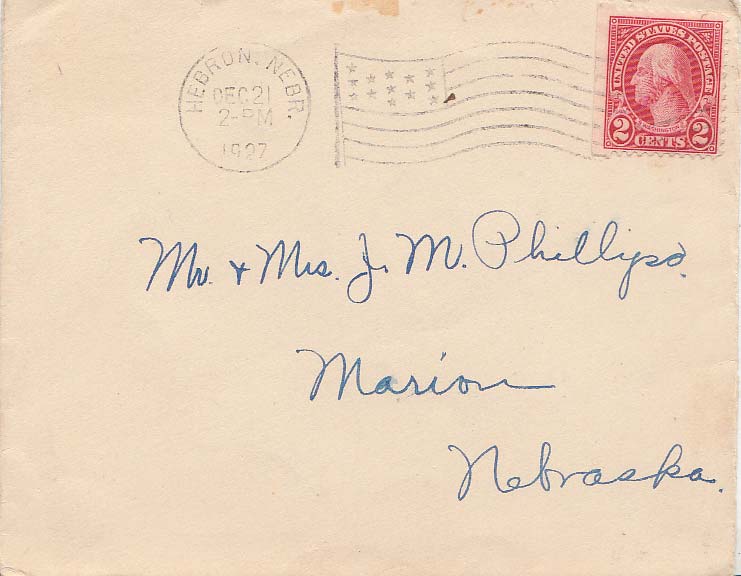 HEBRON, NEBR.
DEC 21
2-PM
1927
UNITED STATES POSTAGE
WASHINGTON
2 CENTS 2
Mr. & Mrs. J. M. Phillips.
Marion
Nebraska.